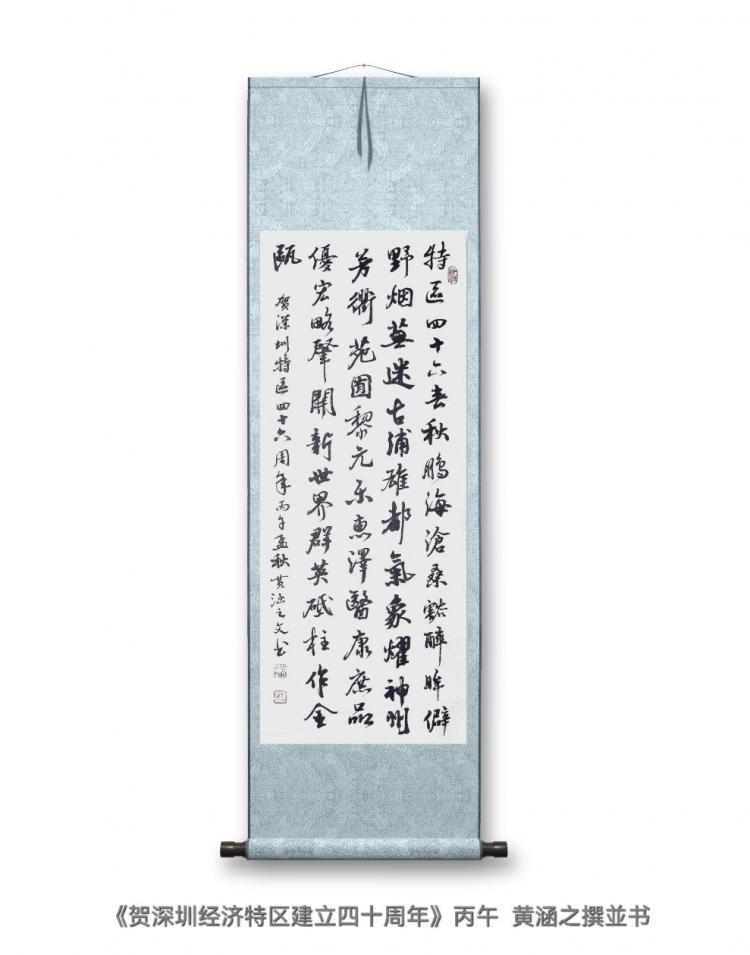 特区四十六春秋鹏海滄桑豁醉眸僻
野烟蕪迷古浦雄都氣象耀神州
芳衢苑囿黎元乐惠澤醫康庶品
優宏略肇開新世界群英砥柱作金
甌
贺深圳特区四十六周年丙午孟秋黄涵之文书
《贺深圳经济特区建立四十周年》丙午 黄涵之撰並书